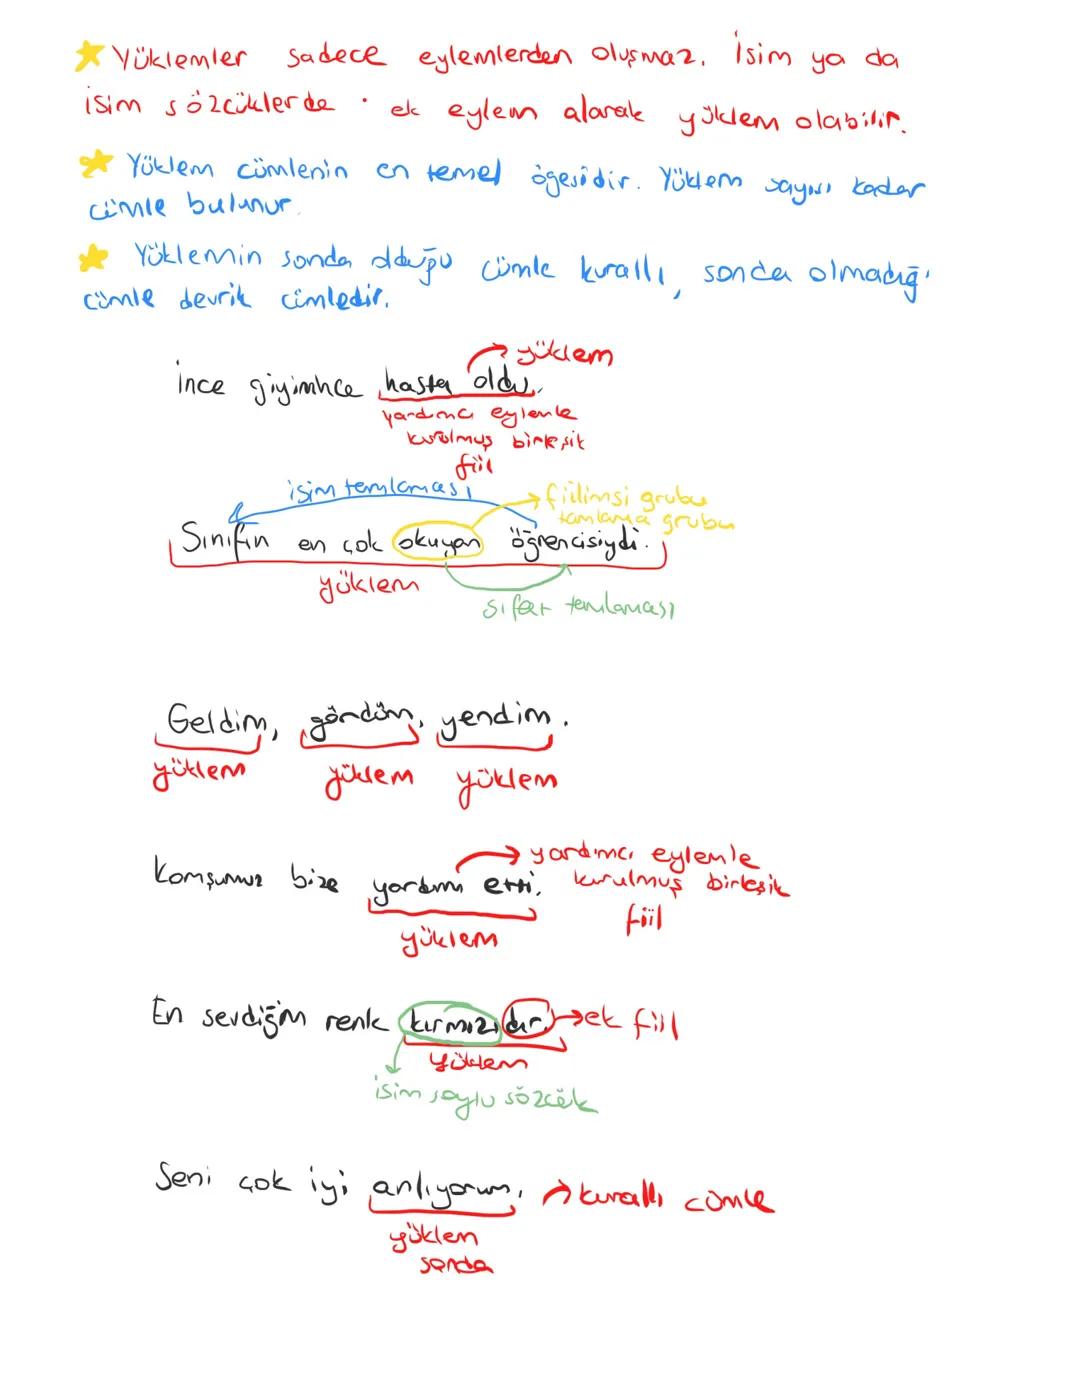 Yüklemler sadece eylemlerden oluşmaz. İsim ya da
isim sözcüklerde ek eylem alarak yüklem olabilir.
Yüklem cümlenin en temel ögesidir. Yüklem sayısı kadar
cümle bulunur.
Yüklemin sonda olduğu cümle kurallı, sonda olmadığı
cümle devrik cümledir.
yüklem
İnce giyinince hasta oldu.
yardımcı eylemle
kurulmuş birleşik
fiil
isim tamlaması
fiilimsi grubu
tamlama grubu
Sınıfın en çok okuyan öğrencisiydi.
yüklem
sıfat tamlaması
Geldim, gördüm, yendim.
yüklem yüklem yüklem
yardımcı eylemle
Komşumuz bize yardım etti. kurulmuş birleşik
fiil
yüklem
En sevdiğim renk kırmızıdır. ek fiil
yüklem
isim soylu sözcük
Seni çok iyi anlıyorum. kurallı cümle
yüklem
sonda